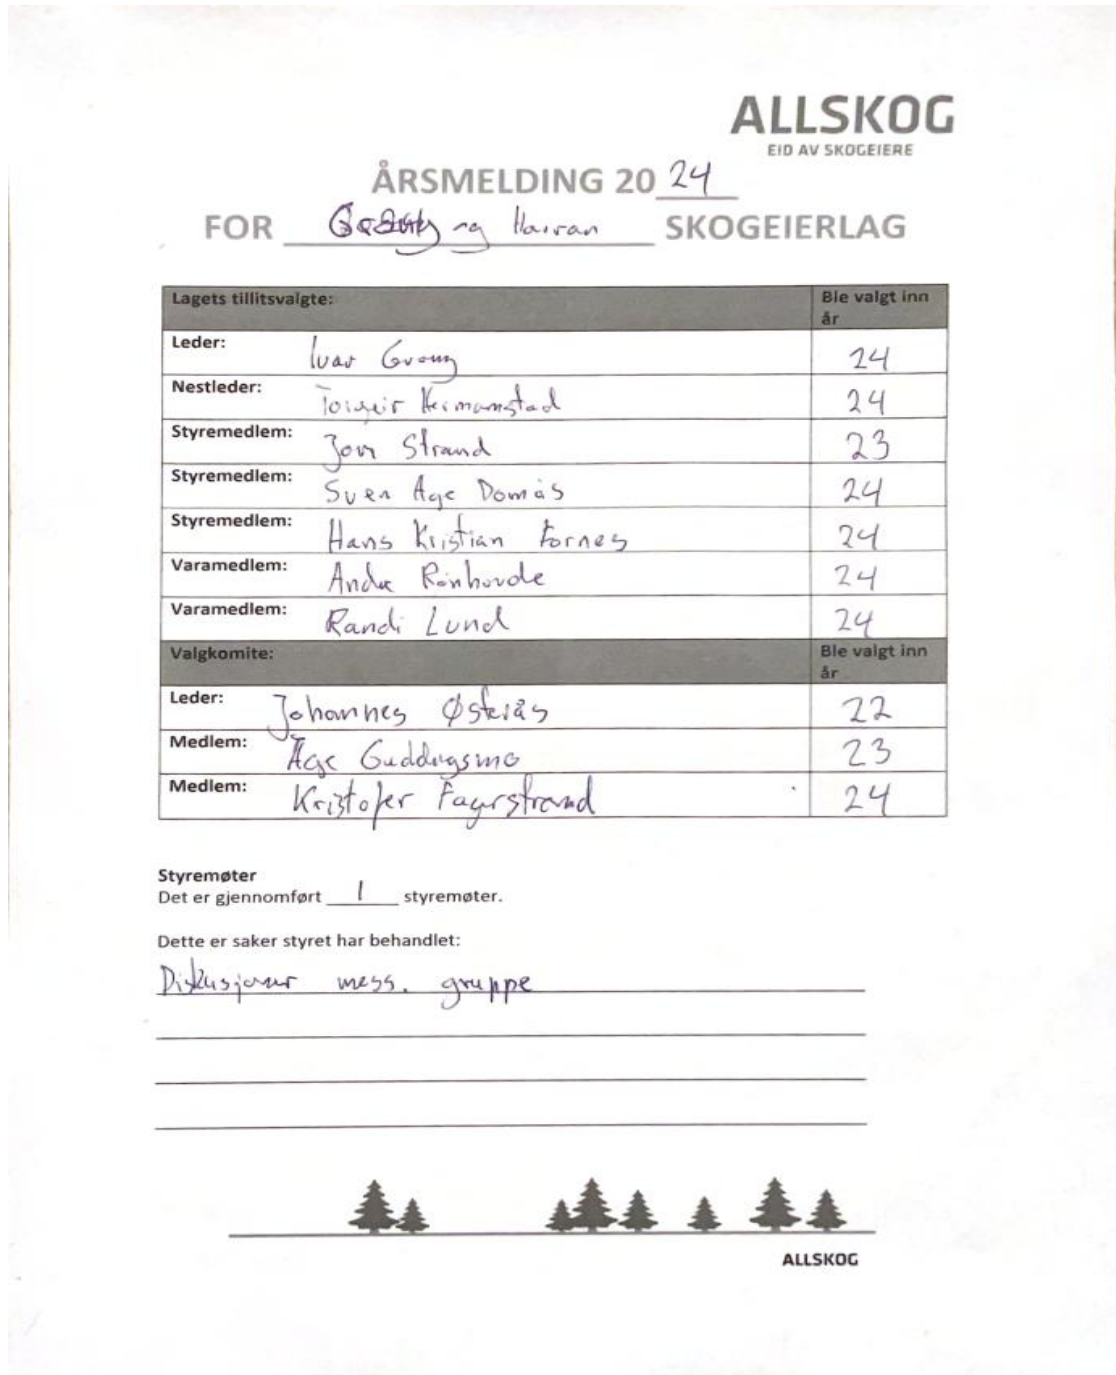 ALLSKOG
EID AV SKOGEIERE
ÅRSMELDING 20 24
FOR og SKOGEIERLAG
Lagets tillitsvalgte: Ble valgt inn
år
Leder: Ivar Grong 24
Nestleder: Torgeir 24
Styremedlem: Jon Strand 23
Styremedlem: Sven Åge Domås 24
Styremedlem: Hans Kristian Fornes 24
Varamedlem: 24
Varamedlem: Randi Lund 24
Valgkomite: Ble valgt inn
år
Leder: Johannes Østerås 22
Medlem: Åge Guddingsmo 23
Medlem: Kristofer Fagerstrand 24
Styremøter
Det er gjennomført 1 styremøter.
Dette er saker styret har behandlet:
Diskusjoner mess. gruppe
ALLSKOG